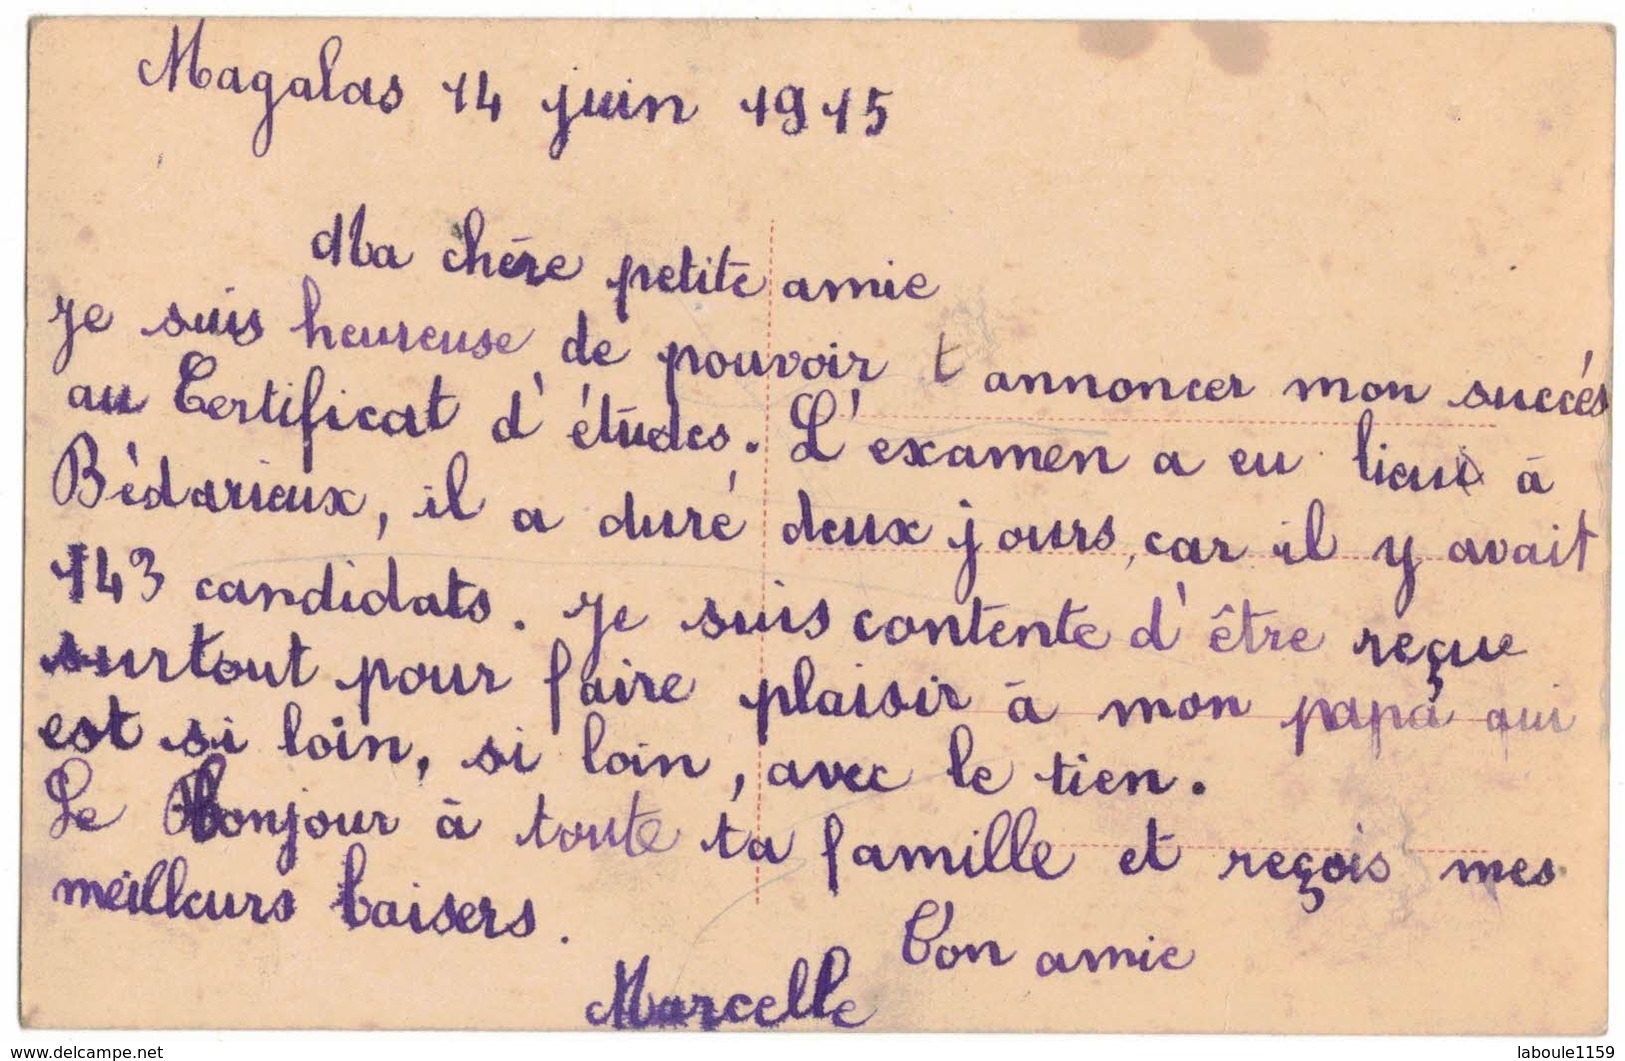 Magalas 14 juin 1915
Ma chère petite amie
Je suis heureuse de pouvoir t annoncer mon succés
au Certificat d'études. L'examen a eu lieu à
Bèdarieux, il a duré deux jours, car il y avait
143 candidats. Je suis contente d'être reçue
surtout pour faire plaisir à mon papa qui
est si loin, si loin, avec le tien.
Le Bonjour à toute ta famille et reçois mes
meilleurs baisers.
Ton amie
Marcelle
www.delcampe.net
laboule1159